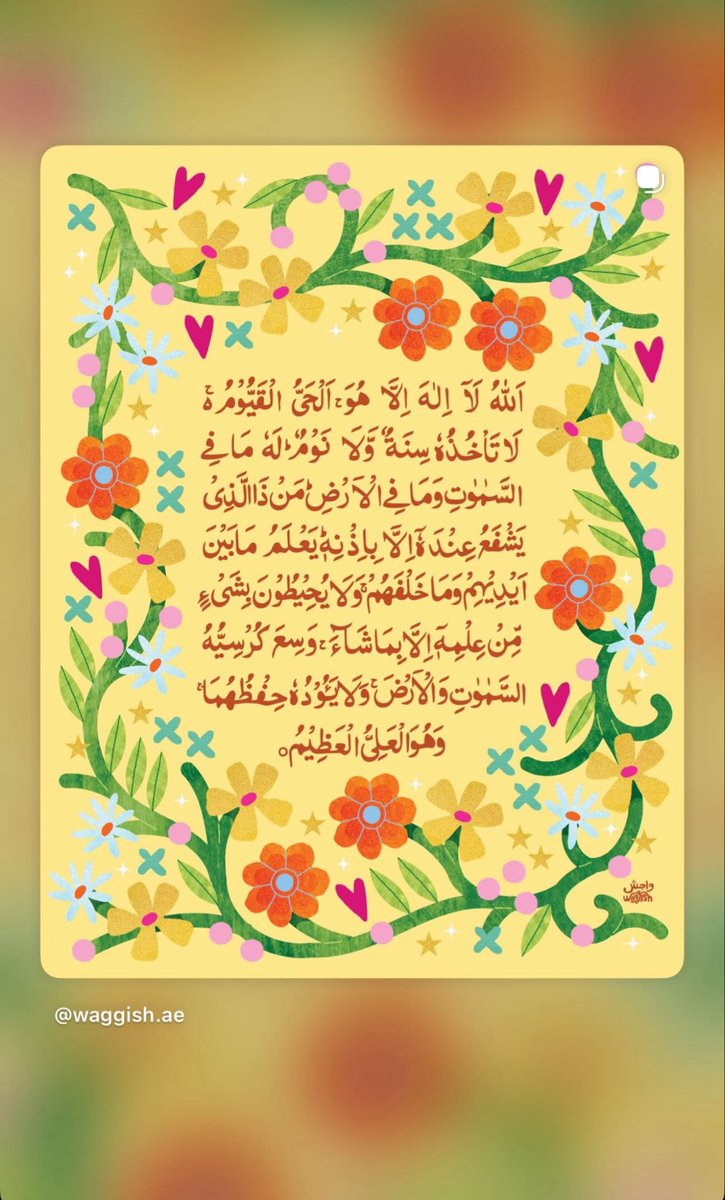 اَللّٰهُ لَآ اِلٰهَ اِلَّا هُوَۚ اَلْحَيُّ الْقَيُّوْمُ ەۚ
لَا تَاْخُذُهٗ سِنَةٌ وَّلَا نَوْمٌۗ لَهٗ مَا فِى
السَّمٰوٰتِ وَمَا فِى الْاَرْضِۗ مَنْ ذَا الَّذِىْ
يَشْفَعُ عِنْدَهٗٓ اِلَّا بِاِذْنِهٖۗ يَعْلَمُ مَا بَيْنَ
اَيْدِيْهِمْ وَمَا خَلْفَهُمْۚ وَلَا يُحِيْطُوْنَ بِشَىْءٍ
مِّنْ عِلْمِهٖٓ اِلَّا بِمَا شَآءَۚ وَسِعَ كُرْسِيُّهُ
السَّمٰوٰتِ وَالْاَرْضَۚ وَلَا يَـُٔوْدُهٗ حِفْظُهُمَاۚ
وَهُوَ الْعَلِىُّ الْعَظِيْمُ ۝
واجش
waggish
@waggish.ae